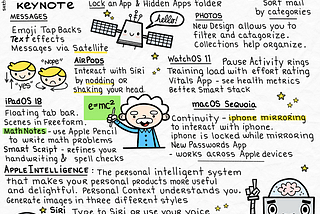 KEYNOTE
Lock an App & Hidden Apps folder
Sort mail
by categories
MESSAGES
Emoji TapBacks
Text effects
Messages via Satellite
hello!
PHOTOS
New Design allows you to
filter and catagorize.
Collections help organize.
"Yes"
"Nope"
AIRPODS
Interact with Siri
by nodding or
shaking your head.
WATCHOS 11
Pause Activity Rings
Training load with effort rating
Vitals App - see health metrics
Better Smart stack
IPADOS 18
Floating tab bar.
Scenes in Freeform.
MathNotes - use Apple Pencil
to write math problems
Smart Script - refines your
handwriting & spell checks
e=mc²
macOS Sequoia
Continuity - iphone mirroring
to interact with iphone.
iphone is locked while mirroring
New Passwords App
- works across Apple devices
APPLE INTELLIGENCE: The personal intelligent system
that makes your personal products more useful
and delightful. Personal Context understands you.
Generate images in three different styles
Siri
Type to Siri or use your voice